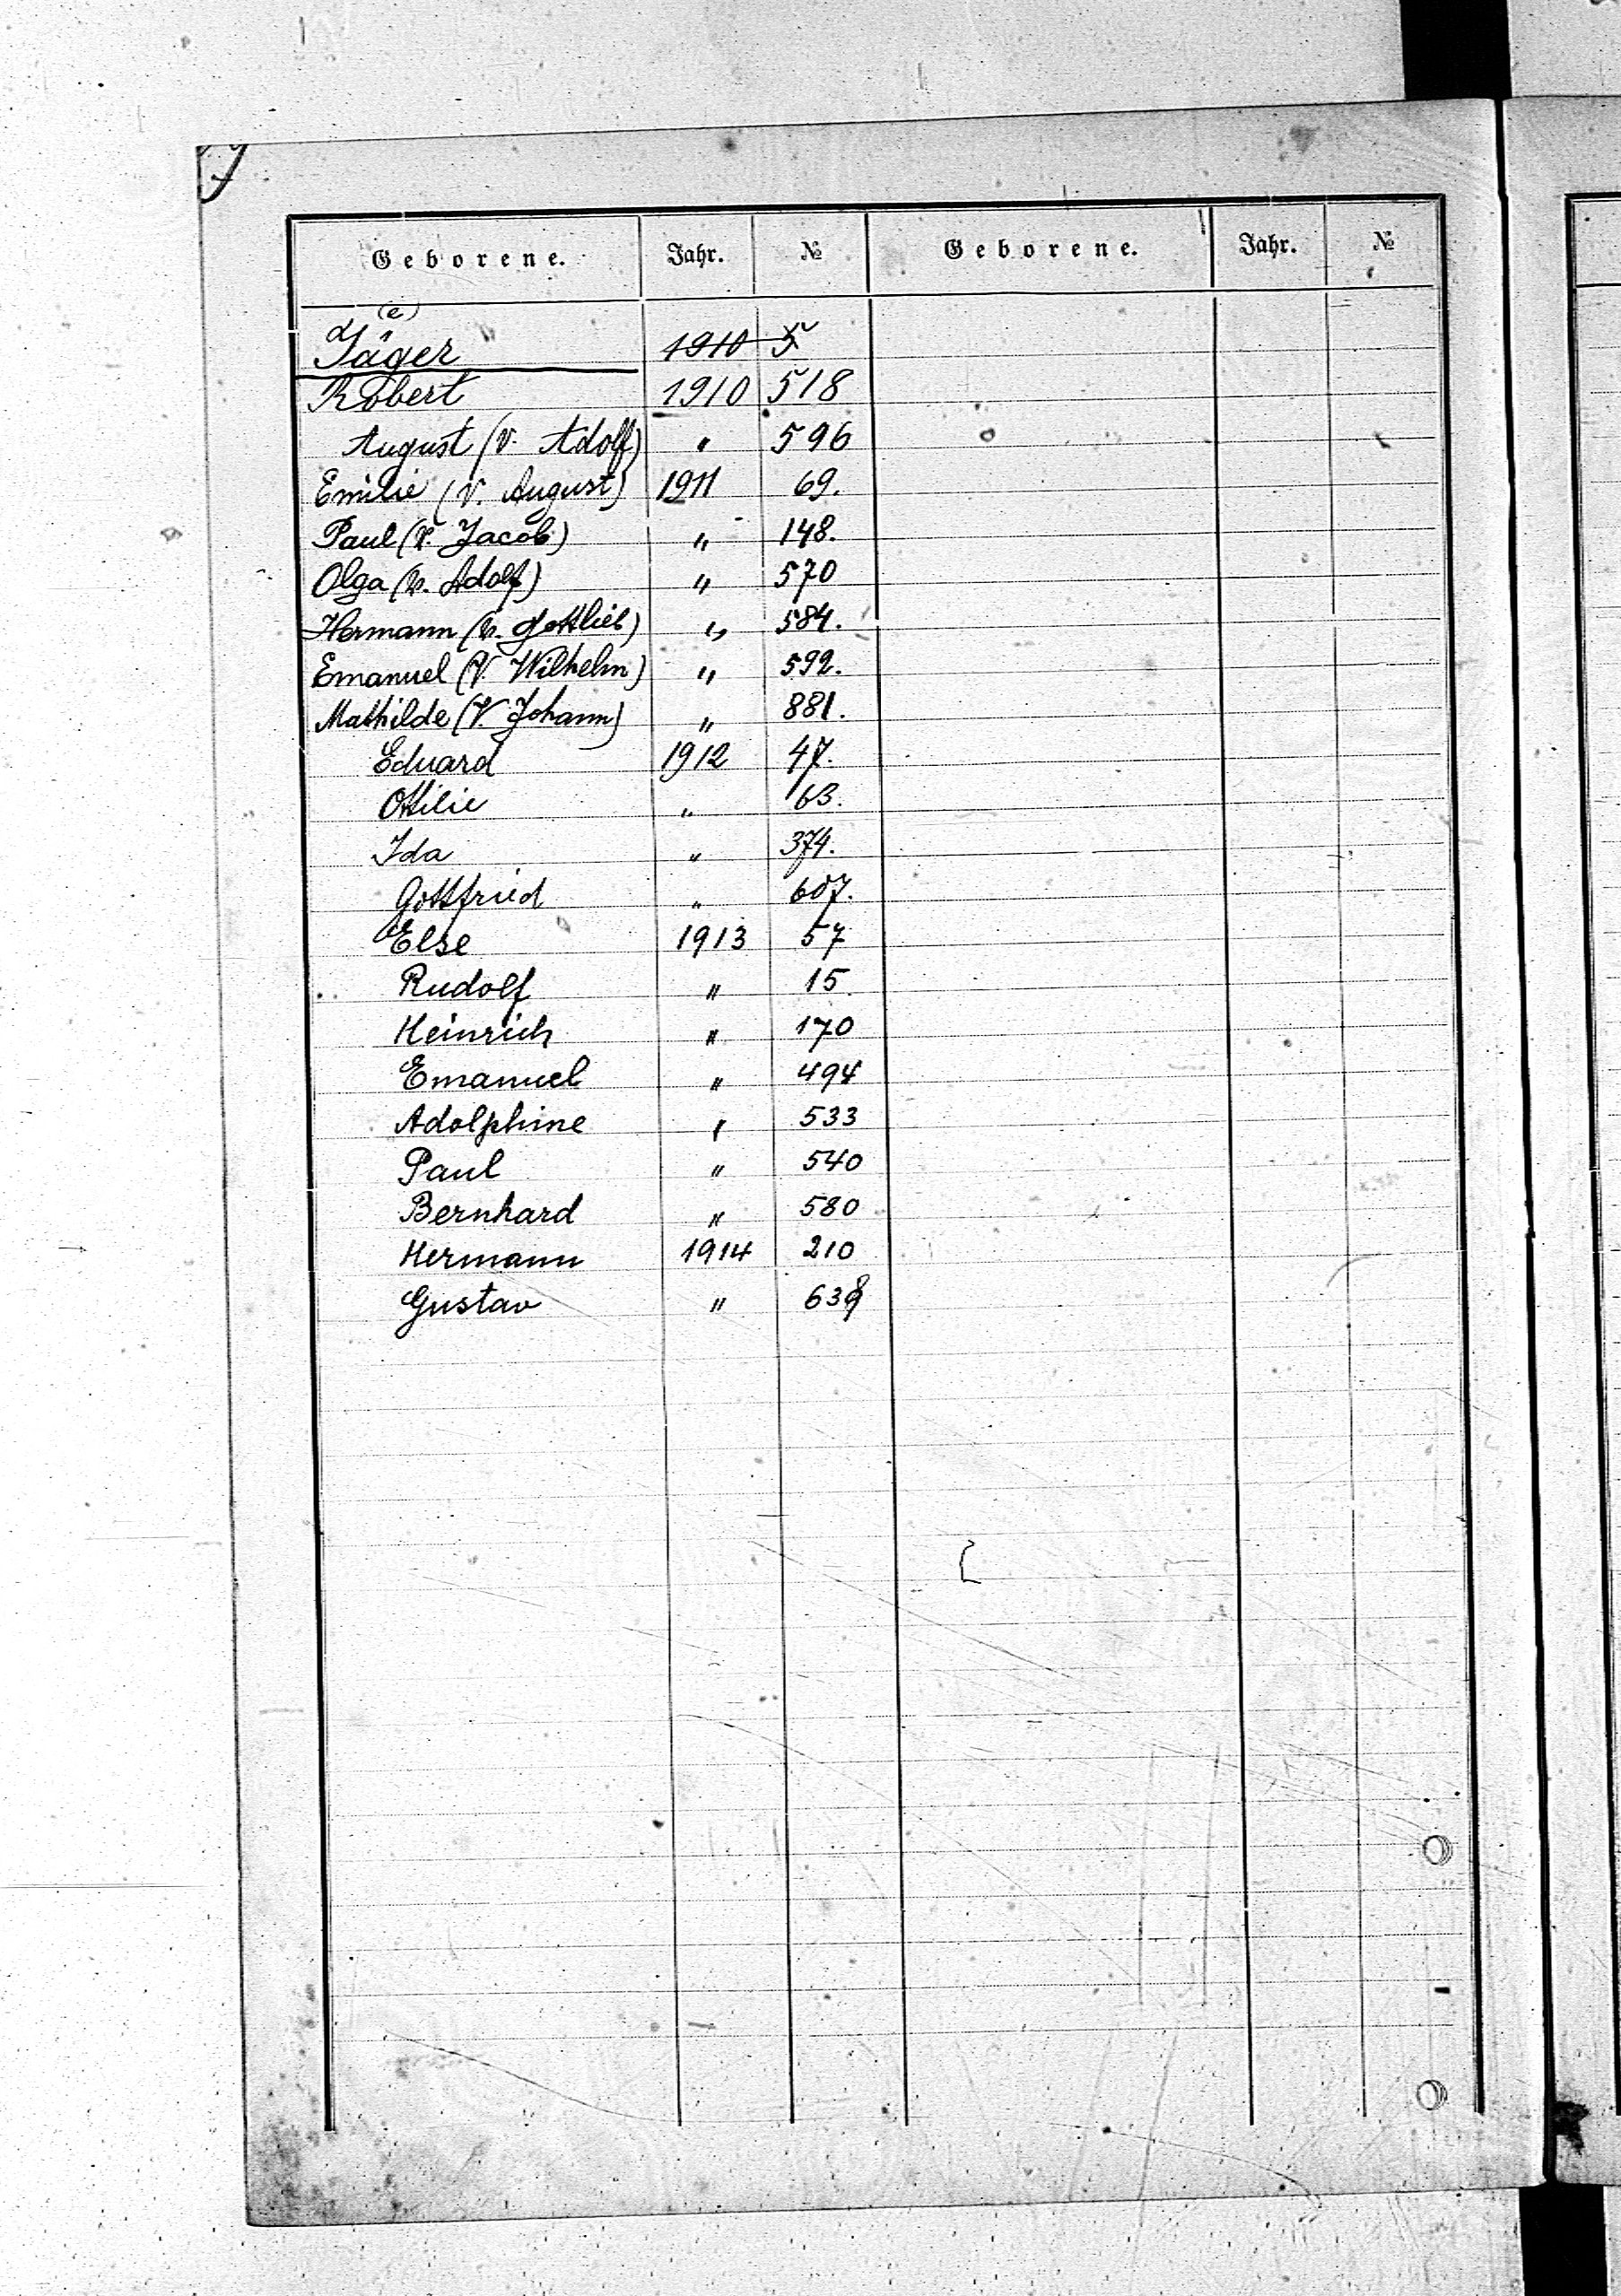 Geborene. Jahr. № Geborene. Jahr. №
(e)
Jäger 1910 5
Robert 1910 518
August (V. Adolf) " 596
Emilie (V. August) 1911 69.
Paul (V. Jacob) " 148.
Olga (V. Adolf) " 570
Hermann (V. Gottlieb) " 584.
Emanuel (V. Wilhelm) " 592.
Mathilde (V. Johann) " 881.
Eduard 1912 47.
Ottilie " 63.
Ida " 374.
Gottfried " 607.
Else 1913 57
Rudolf " 15
Heinrich " 170
Emanuel " 494
Adolphine " 533
Paul " 540
Bernhard " 580
Hermann 1914 210
Gustav "